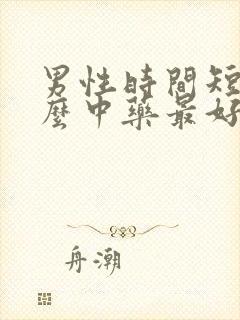 男性時間短
麼中藥最好
舟潮